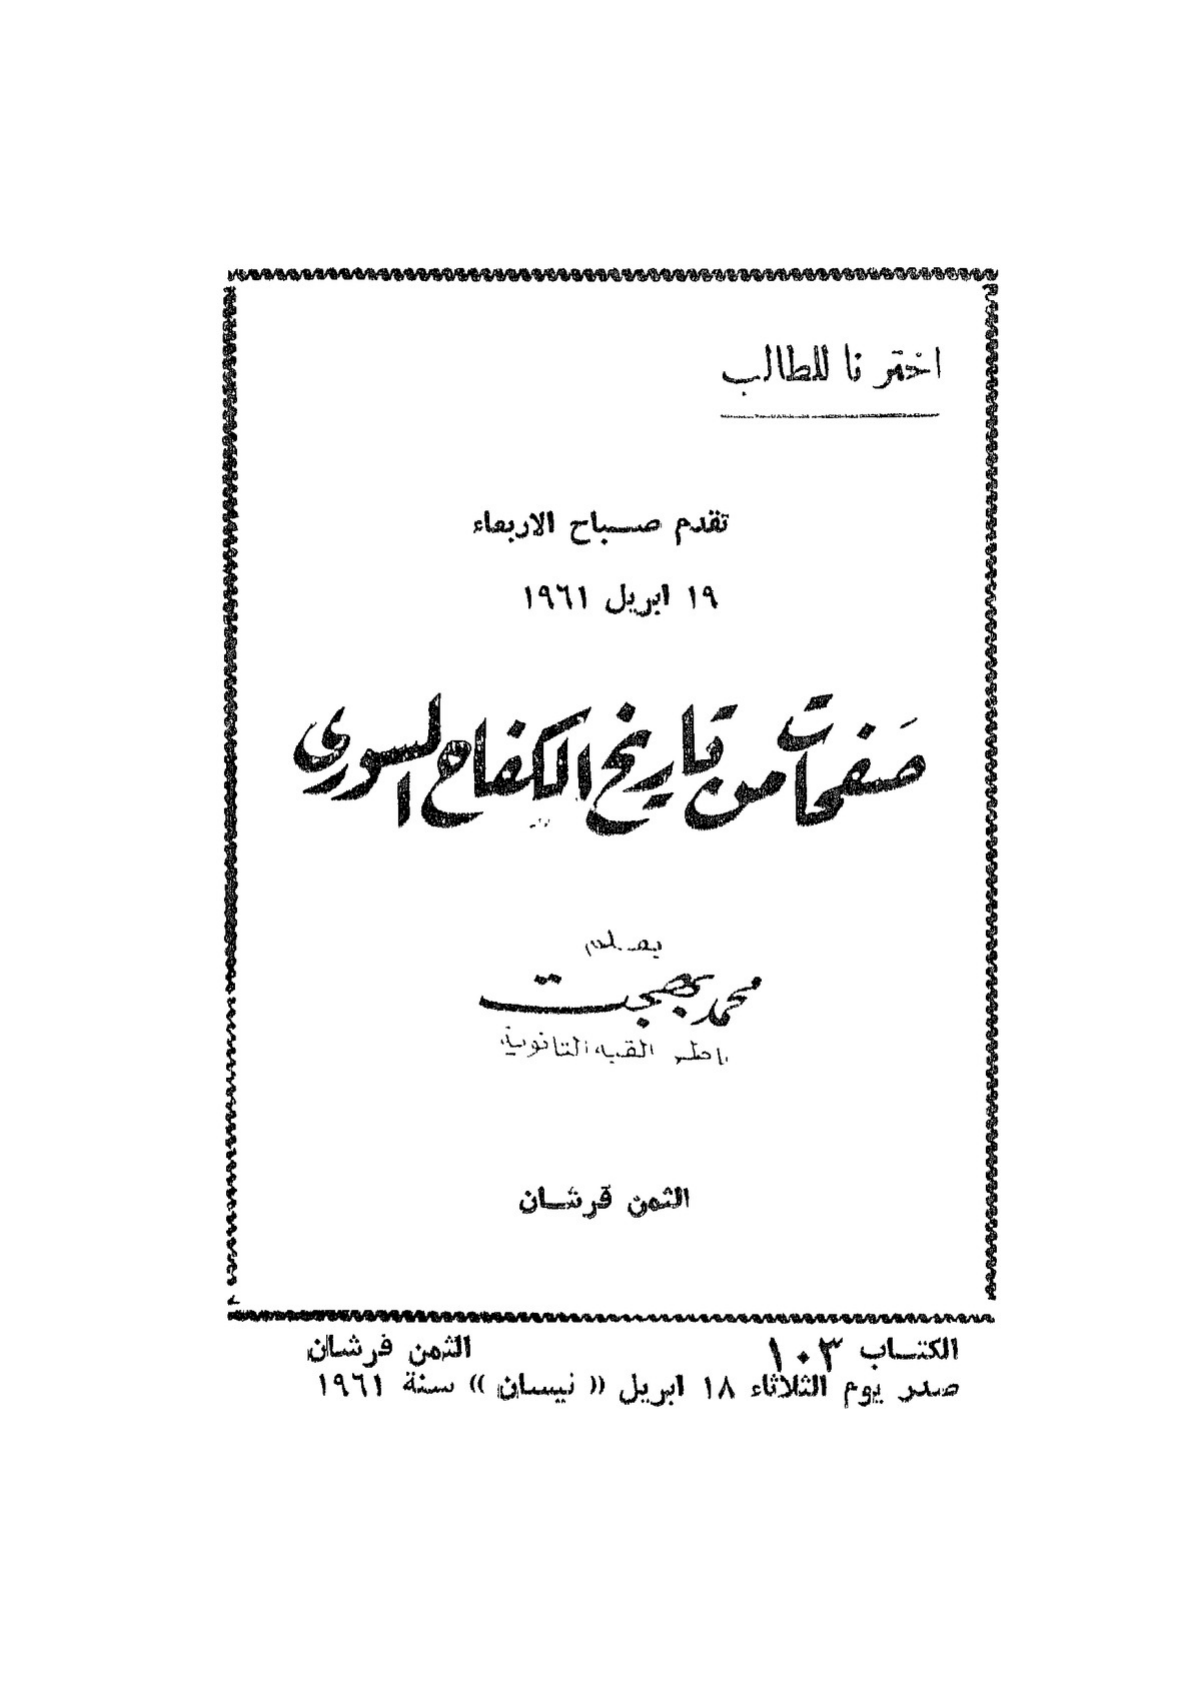 اخترنا للطالب
تقدم صباح الاربعاء
١٩ ابريل ١٩٦١
صفحات من تاريخ الكفاح السورى
بقلم
محمد بهجت
ناظر القبة الثانوية
الثمن قرشان
الكتاب ١٠٣
الثمن قرشان
صدر يوم الثلاثاء ١٨ ابريل (( نيسان )) سنة ١٩٦١